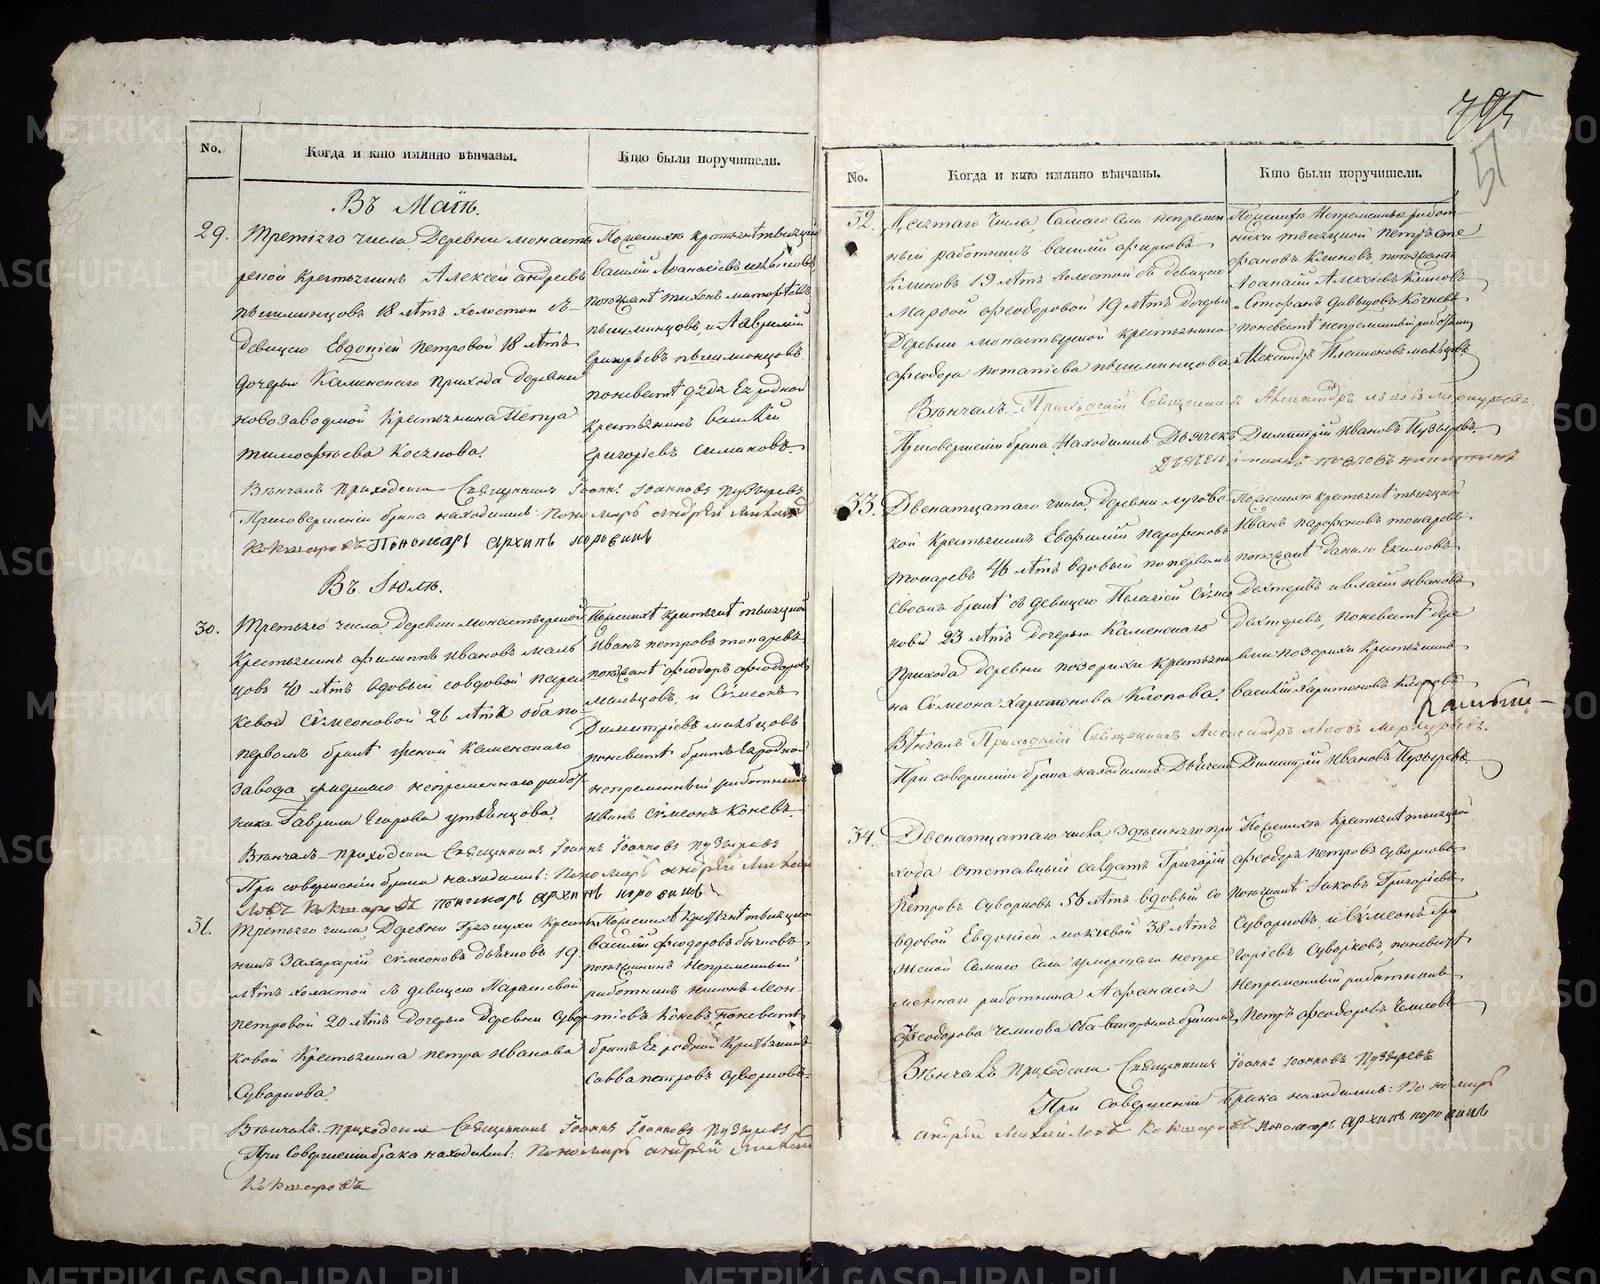 795
51
No. Когда и кто имянно вѣнчаны. Кто были поручители.
Въ Маіѣ.
29. Третіяго числа, Деревни Монасты-
рской Крестьянинъ Алексѣй Андреевъ
Пѣшминцовъ 18 лѣтъ холостой съ
девицею Евдокіей Петровой 18 лѣтъ
дочерью Каменскаго прихода деревни
новозаводской Крестьянина Петра
Тимофѣева Косякова.
По женихѣ крестьянѣ
Василій Афанасіевъ
поѣзжанѣ Тихонъ
Пѣшминцовъ, и Гаврилъ
Григорьевъ Пѣшминцовъ
по невестѣ дядя Ея родной
крестьянинъ Василій
Григоріевъ Симаковъ.
Вѣнчалъ приходскій Священникъ Іоаннъ Іоанновъ Пузыревъ
При совершеніи брака находились: Пономарь Андрей Михайл
Кокшаровъ Пономарь Архипъ Коровинъ
Въ Іюлѣ.
30. Третьяго числа, деревни Монастырской
Крестьянинъ Филиппъ Ивановъ Маль
цовъ 40 лѣтъ вдовый со вдовой Параs
кевой Симеоновой 26 лѣтъ оба по
первомъ бракѣ женой Каменскаго
завода умершаго непременнаго работ
ника Гаврила Егорова
По женихѣ крестьянѣ
Иванъ Петровъ Токаревъ
поѣзжанѣ Феодоръ Феодоровъ
Мальцовъ, и Симеонъ
Димитріевъ Мальцовъ
по невестѣ братъ Ея родной
непременный работникъ
Иванъ Симеоновъ Коневъ.
Вѣнчалъ приходскій Священникъ Іоаннъ Іоанновъ Пузыревъ
При совершеніи брака находились: Пономарь Андрей Михай
ловъ Кокшаровъ Пономарь Архипъ Коровинъ
31. Третьяго числа, Деревни Грязнухи Крестья
нинъ Захарій Симеоновъ 19
лѣтъ холостой съ девицею Параскевой
Петровой 20 лѣтъ дочерью деревни Сувор
ковой Крестьянина Петра Иванова
Суворкова.
Василій Феодоровъ Бычковъ
поѣзжанинъ Непременный
работникъ
Коневъ по невестѣ
братъ Ея родной Крестьянинъ
Савва Петровъ Суворковъ.
Вѣнчалъ приходскій Священникъ Іоаннъ Іоанновъ Пузыревъ
При совершеніи брака находились: Пономарь Андрей Михайл
Кокшаровъ
No. Когда и кто имянно вѣнчаны. Кто были поручители.
32. Десятаго числа, Самаго села непремен
ный работникъ Василій Фирсовъ
Климовъ 19 лѣтъ холостой съ девицею
Марфой Феодоровой 19 лѣтъ дочерью
Деревни Монастырской крестьянина
Феодора Потапіева Пѣшминцова
По женихѣ Непременные работ
ники тысяцкой Петръ Сте
фановъ Климовъ, поѣзжанѣ
Афанасій Алексѣевъ Климовъ
и Стефанъ Давыдовъ Кочневъ
по невестѣ непременный работникъ
Александръ Платоновъ Мальцовъ
Вѣнчалъ Приходскій Священникъ Александръ Львовъ Меркурьевъ
При совершеніи брака находились Дьячекъ Димитрій Ивановъ Пузыревъ.
33. Двенатцатаго числа, деревни Лугов
ской Крестьянинъ Евфимій Парфеновъ
Токаревъ 46 лѣтъ вдовый по первомъ
своемъ бракѣ съ девицею Пелагіей Симео
новой 23 лѣтъ дочерью Каменскаго
прихода деревни Позарихи крестьяни
на Симеона Харитонова Клопова.
По женихѣ крестьянѣ тысяцкой
Иванъ Парфеновъ Токаревъ
поѣзжанѣ Данило Екимовъ
Дехтеревъ и Власій Ивановъ
Дехтеревъ, по невестѣ дере
вни Позарихи Крестьянинъ
Василій Харитоновъ Клоповъ
Вѣнчалъ Приходскій Священникъ Александръ Львовъ Меркурьевъ.
При совершеніи брака находились Дьячекъ Димитрій Ивановъ Пузыревъ
34. Двенатцатаго числа, здѣшняго при
хода отставный салдатъ Григорій
Петровъ Суворковъ 56 лѣтъ вдовый со
вдовой Евдокіей Мокіевой 38 лѣтъ
женой Самаго села умершаго непре
меннаго работника Афанасья
Феодорова Чемкова оба вторымъ бракомъ
По женихѣ Крестьянѣ тысяцкой
Феодоръ Петровъ Суворковъ
поѣзжанѣ Іаковъ Григорьевъ
Суворковъ, и Симеонъ Гри
горіевъ Суворковъ, по невестѣ
Непременный работникъ
Петръ Феодоровъ Чемковъ
Вѣнчалъ Приходскій Священникъ Іоаннъ Іоанновъ Пузыревъ
При совершеніи брака находились: Пономарь
Андрей Михайловъ Кокшаровъ Пономарь Архипъ Коровинъ
METRIKI.GASO-URAL.RU